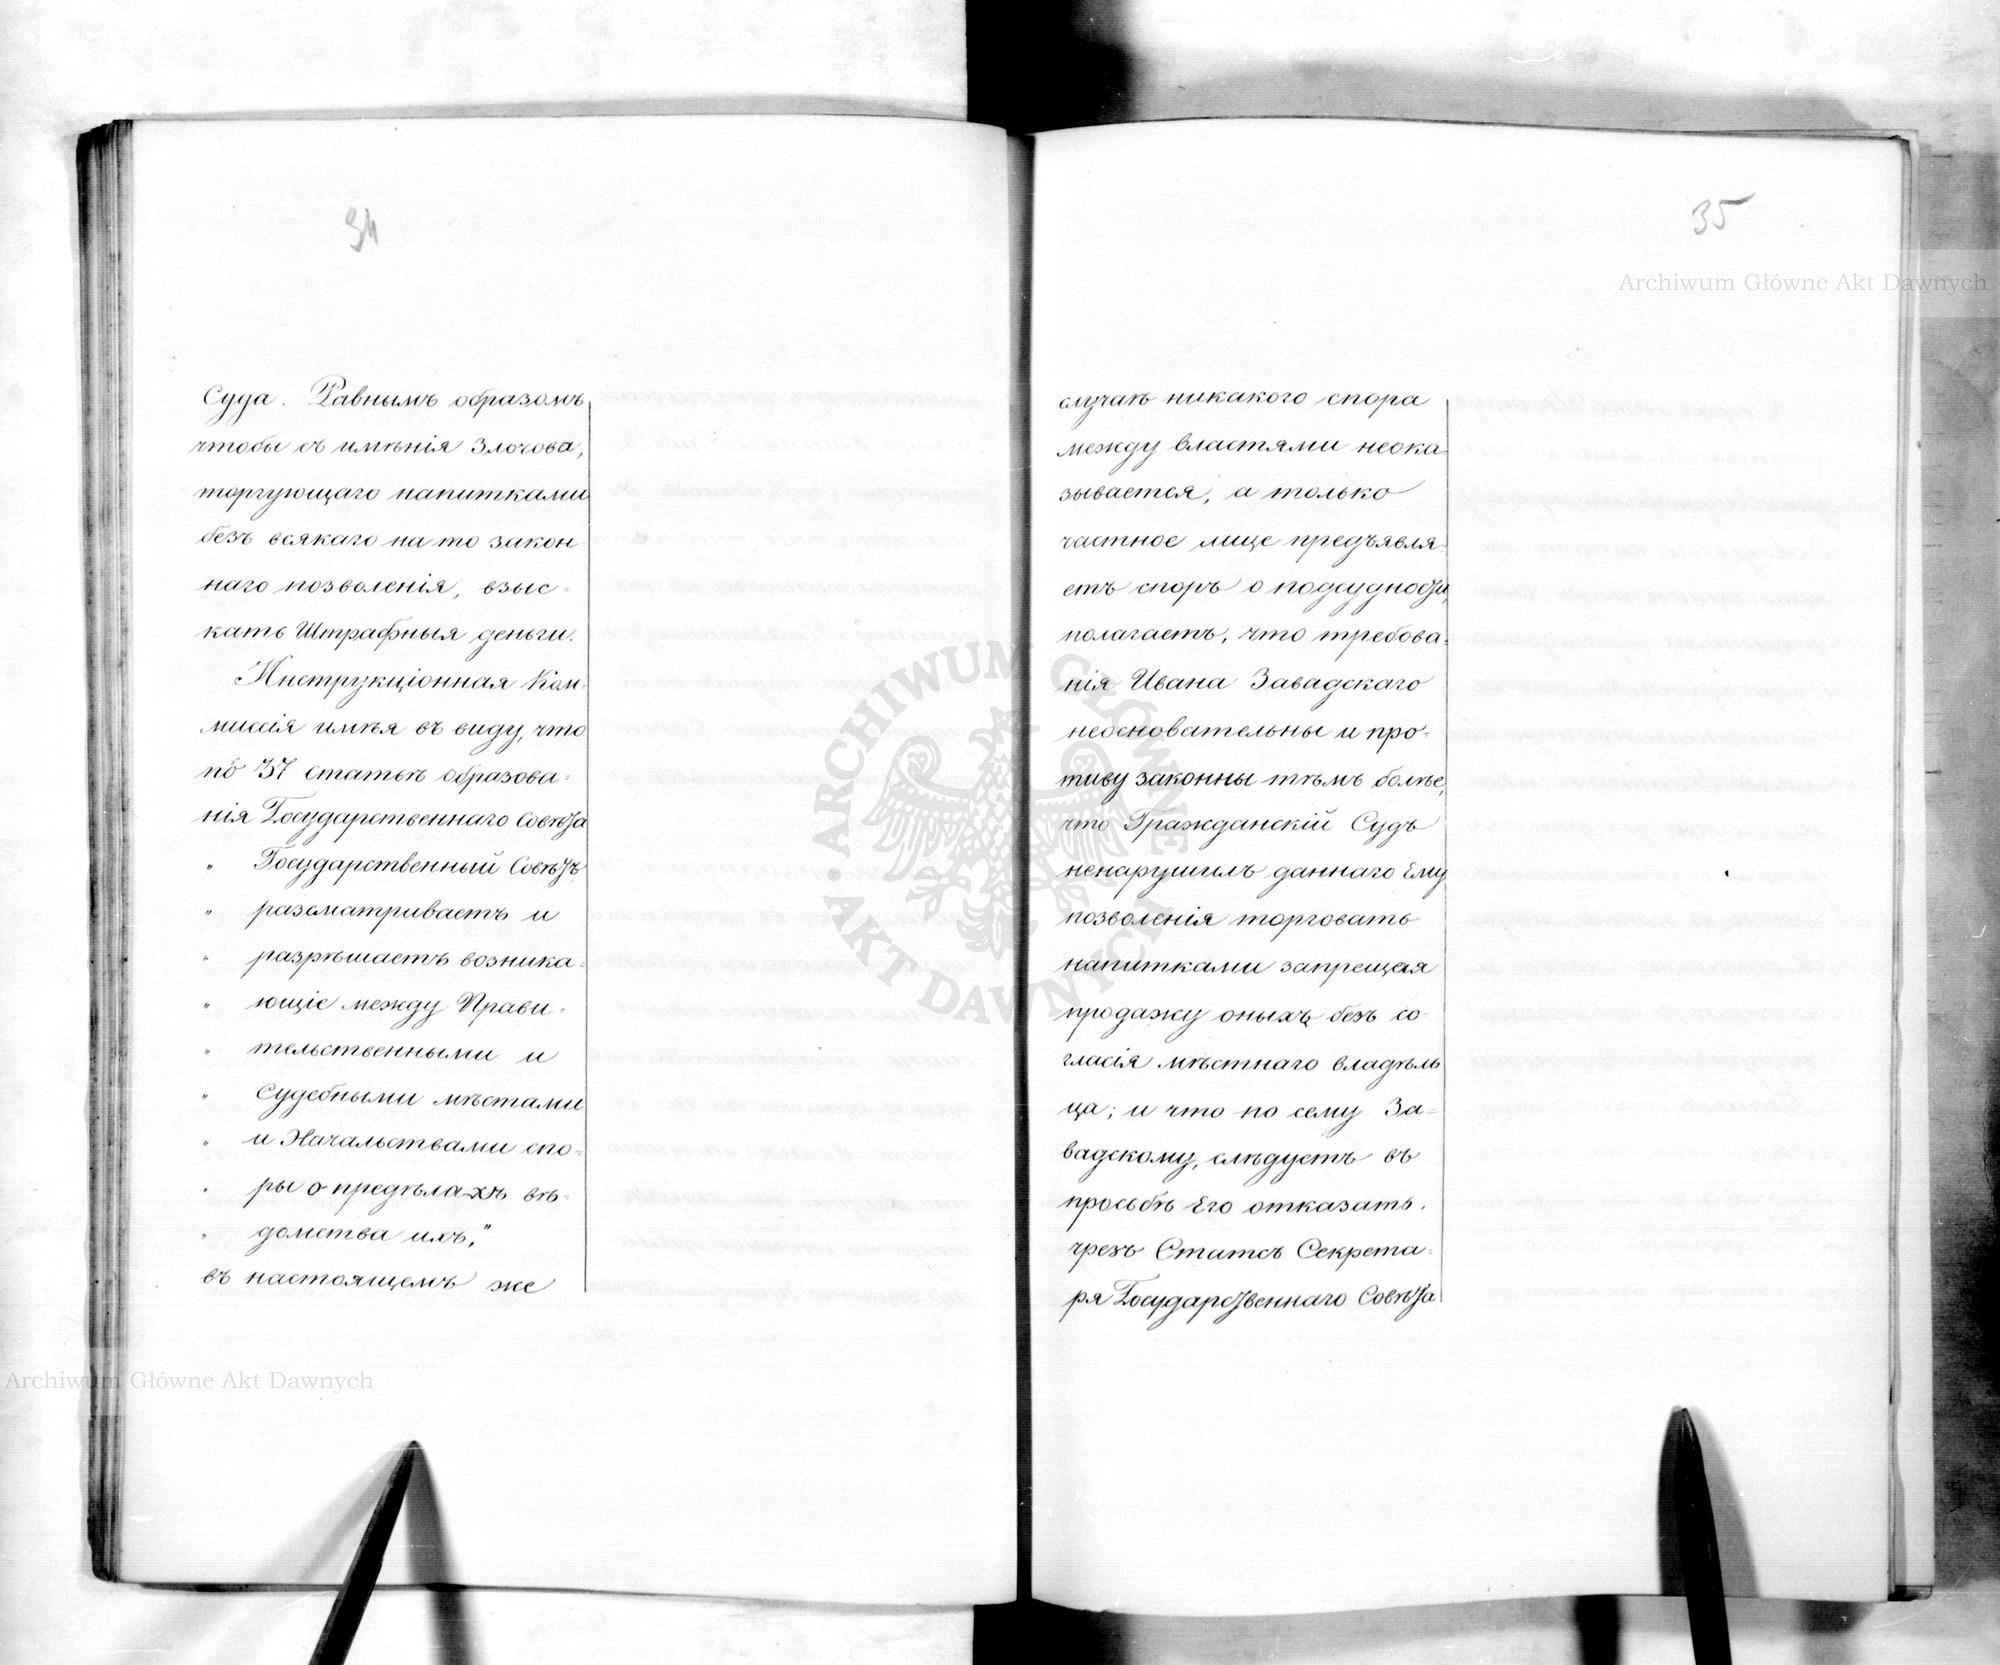 34
Суда. Равнымъ образомъ
чтобы съ имѣнія Злочова,
торгующаго напитками
безъ всякаго на то закон
наго позволенія, взыс-
кать Штрафныя деньги.
Инструкціонная Ком-
миссія имѣя въ виду, что
по 37 статьѣ образова-
нія Государственнаго Совѣта
„ Государственный Совѣтъ
„ разсматриваетъ и
„ разрѣшаетъ возника-
„ ющіе между Прави-
„ тельственными и
„ Судебными мѣстами
„ и Начальствами спо-
„ ры о предѣлахъ вѣ-
„ домства ихъ,"
въ настоящемъ же
35
случаѣ никакого спора
между властями неока-
зывается, а только
частное лице предъявля-
етъ споръ о подсудности,
полагаетъ, что требова-
нія Ивана Завадскаго
неосновательны и про-
тиву законны тѣмъ болѣе,
что Гражданскій Судъ
ненарушилъ даннаго Ему
позволенія торговать
напитками запрещая
продажу оныхъ безъ со-
гласія мѣстнаго владѣль
ца; и что по сему За-
вадскому, слѣдуетъ въ
просьбѣ Его отказать.
чрезъ Статсъ Секрета-
ря Государственнаго Совѣта
Archiwum Główne Akt Dawnych
Archiwum Główne Akt Dawnych
ARCHIWUM GŁÓWNE · AKT DAWNYCH ·